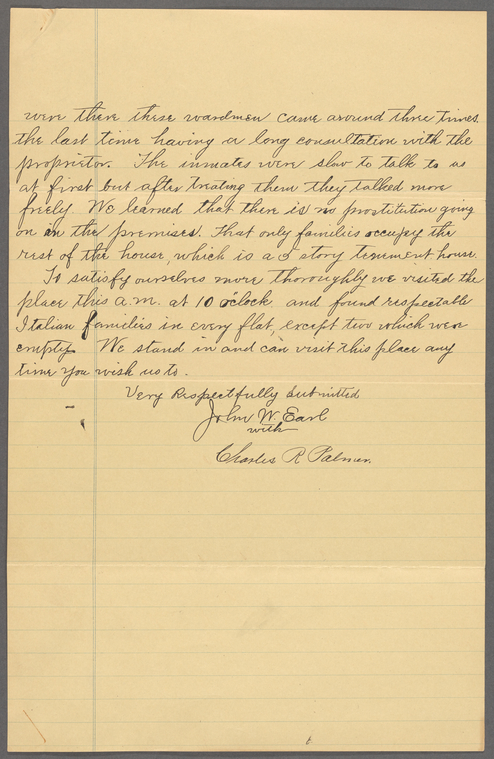 were there these wardmen came around three times.
the last time having a long consultation with the
proprietor. The inmates were slow to talk to us
at first but after treating them they talked more
freely. We learned that there is no prostitution going
on in the premises. That only families occupy the
rest of the house, which is a 5 story tenement house.
To satisfy ourselves more thoroughly we visited the
place this a.m. at 10 oclock and found respectable
Italian families in every flat, except two which were
empty. We stand in and can visit this place any
time you wish us to.
Very Respectfully Submitted
John W. Earl
with
Charles R Palmer.